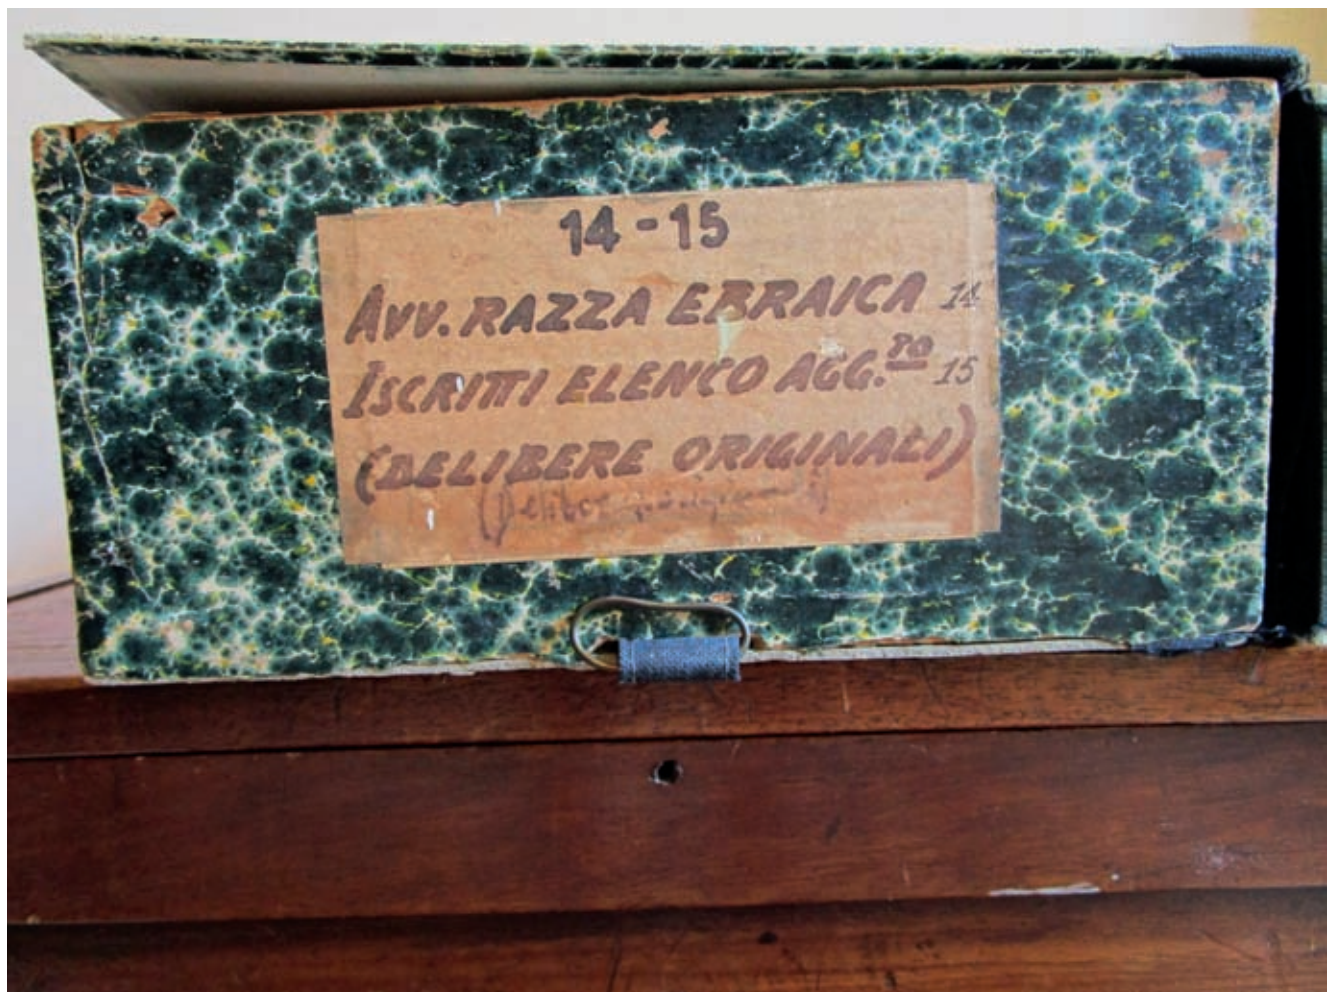 14-15
AVV. RAZZA EBRAICA 14
ISCRITTI ELENCO AGG.TO 15
(DELIBERE ORIGINALI)